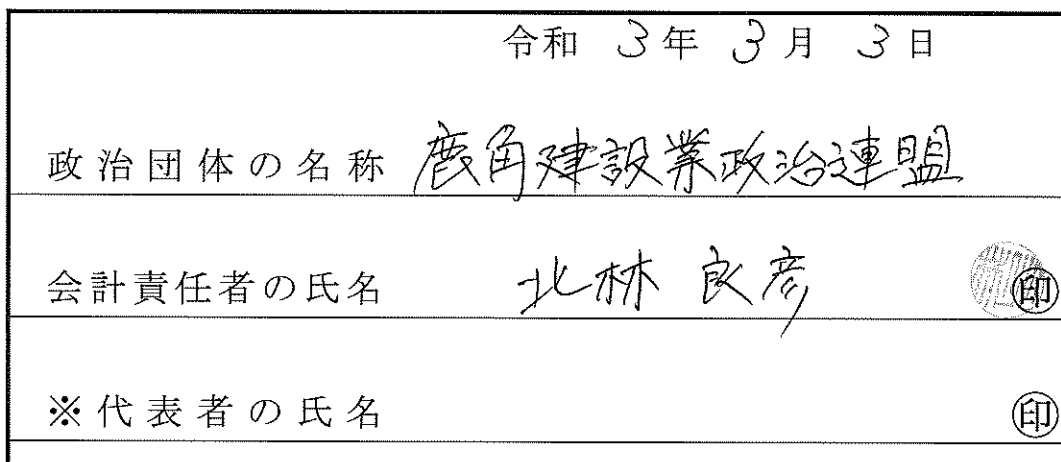 令和 3年 3月 3日
政治団体の名称 鹿角建設業政治連盟
会計責任者の氏名 北林 良彦 ㊞
※代表者の氏名 ㊞